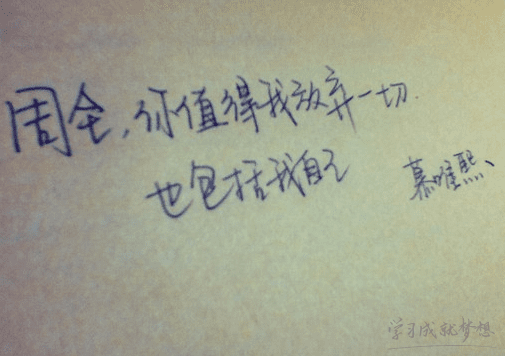 周全，你值得我放弃一切.
也包括我自己
慕唯熙、
学习成就梦想